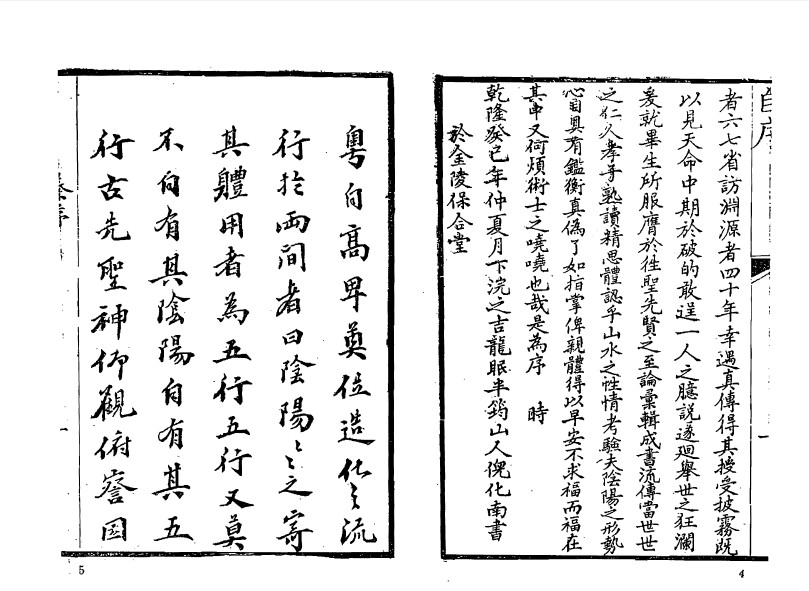 自序
者六七省訪淵源者四十年幸遇真傳得其授受披霧既
以見天命中期於破的敢逞一人之臆說遂廻舉世之狂瀾
爰就畢生所服膺於徃聖先賢之至論彙輯成書流傳當世世
之仁人孝子熟讀精思體認乎山水之性情考驗夫陰陽之形勢
心目奥有鑑衡真偽了如指掌俾親體得以早安不求福而福在
其中又何煩術士之嘵嘵也哉是為序 時
乾隆癸巳年仲夏月下浣之吉龍眠半筠山人倪化南書
於金陵保合堂
4
粤自高卑奠位造化之流
行於兩間者曰陰陽陰陽之寄
其體用者為五行五行又莫
不自有其陰陽自有其五
行古先聖神仰觀俯察因
5